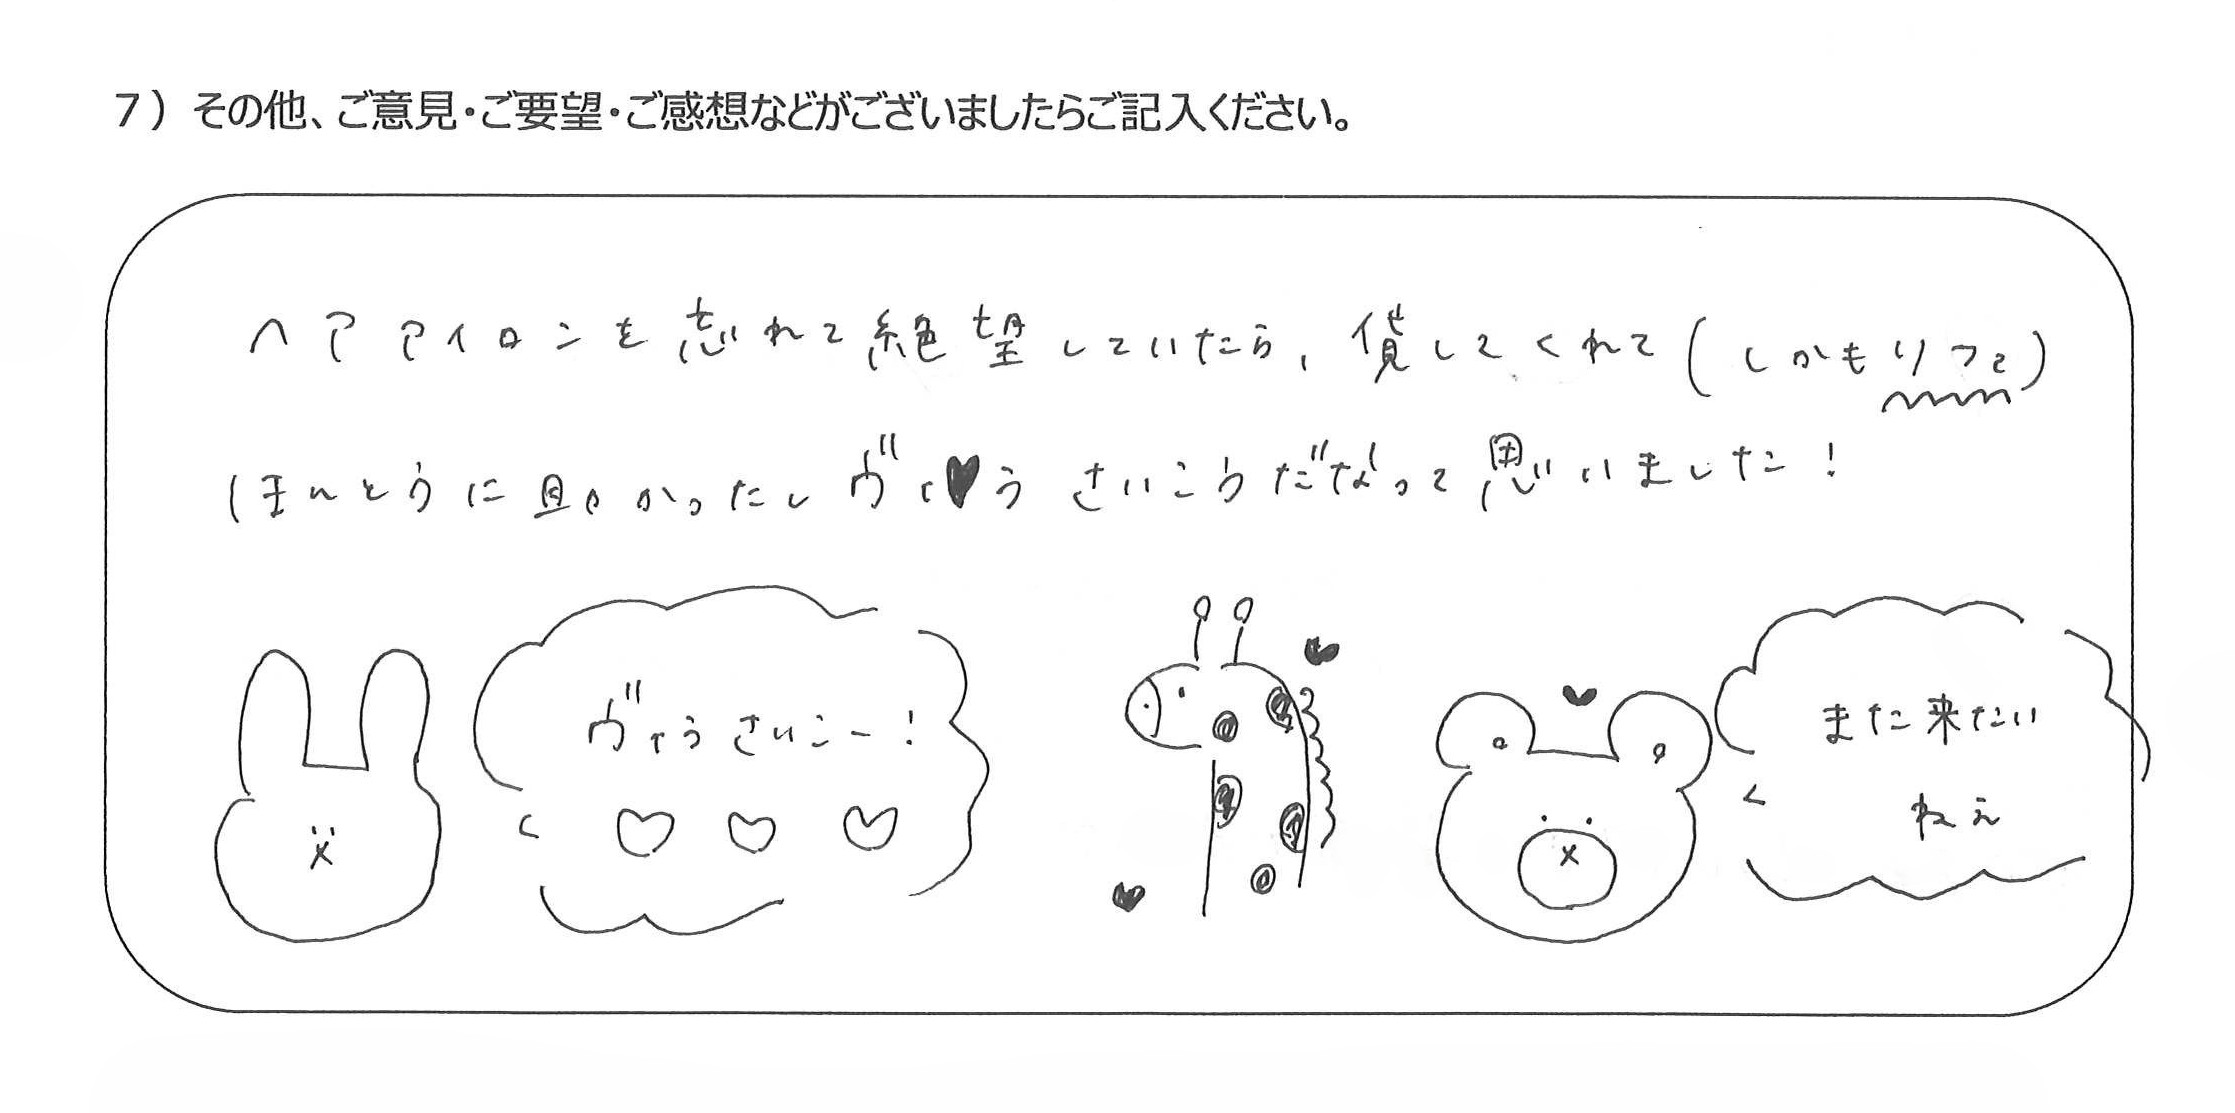 7）その他、ご意見・ご要望・ご感想などがございましたらご記入ください。
ヘアアイロンを忘れて絶望していたら、貸してくれて(しかもリファ)
ほんとうに助かったしヴィ♥ラさいこうだなって思いました!
ヴィラさいこー!
♡♡♡
また来たい
ねえ